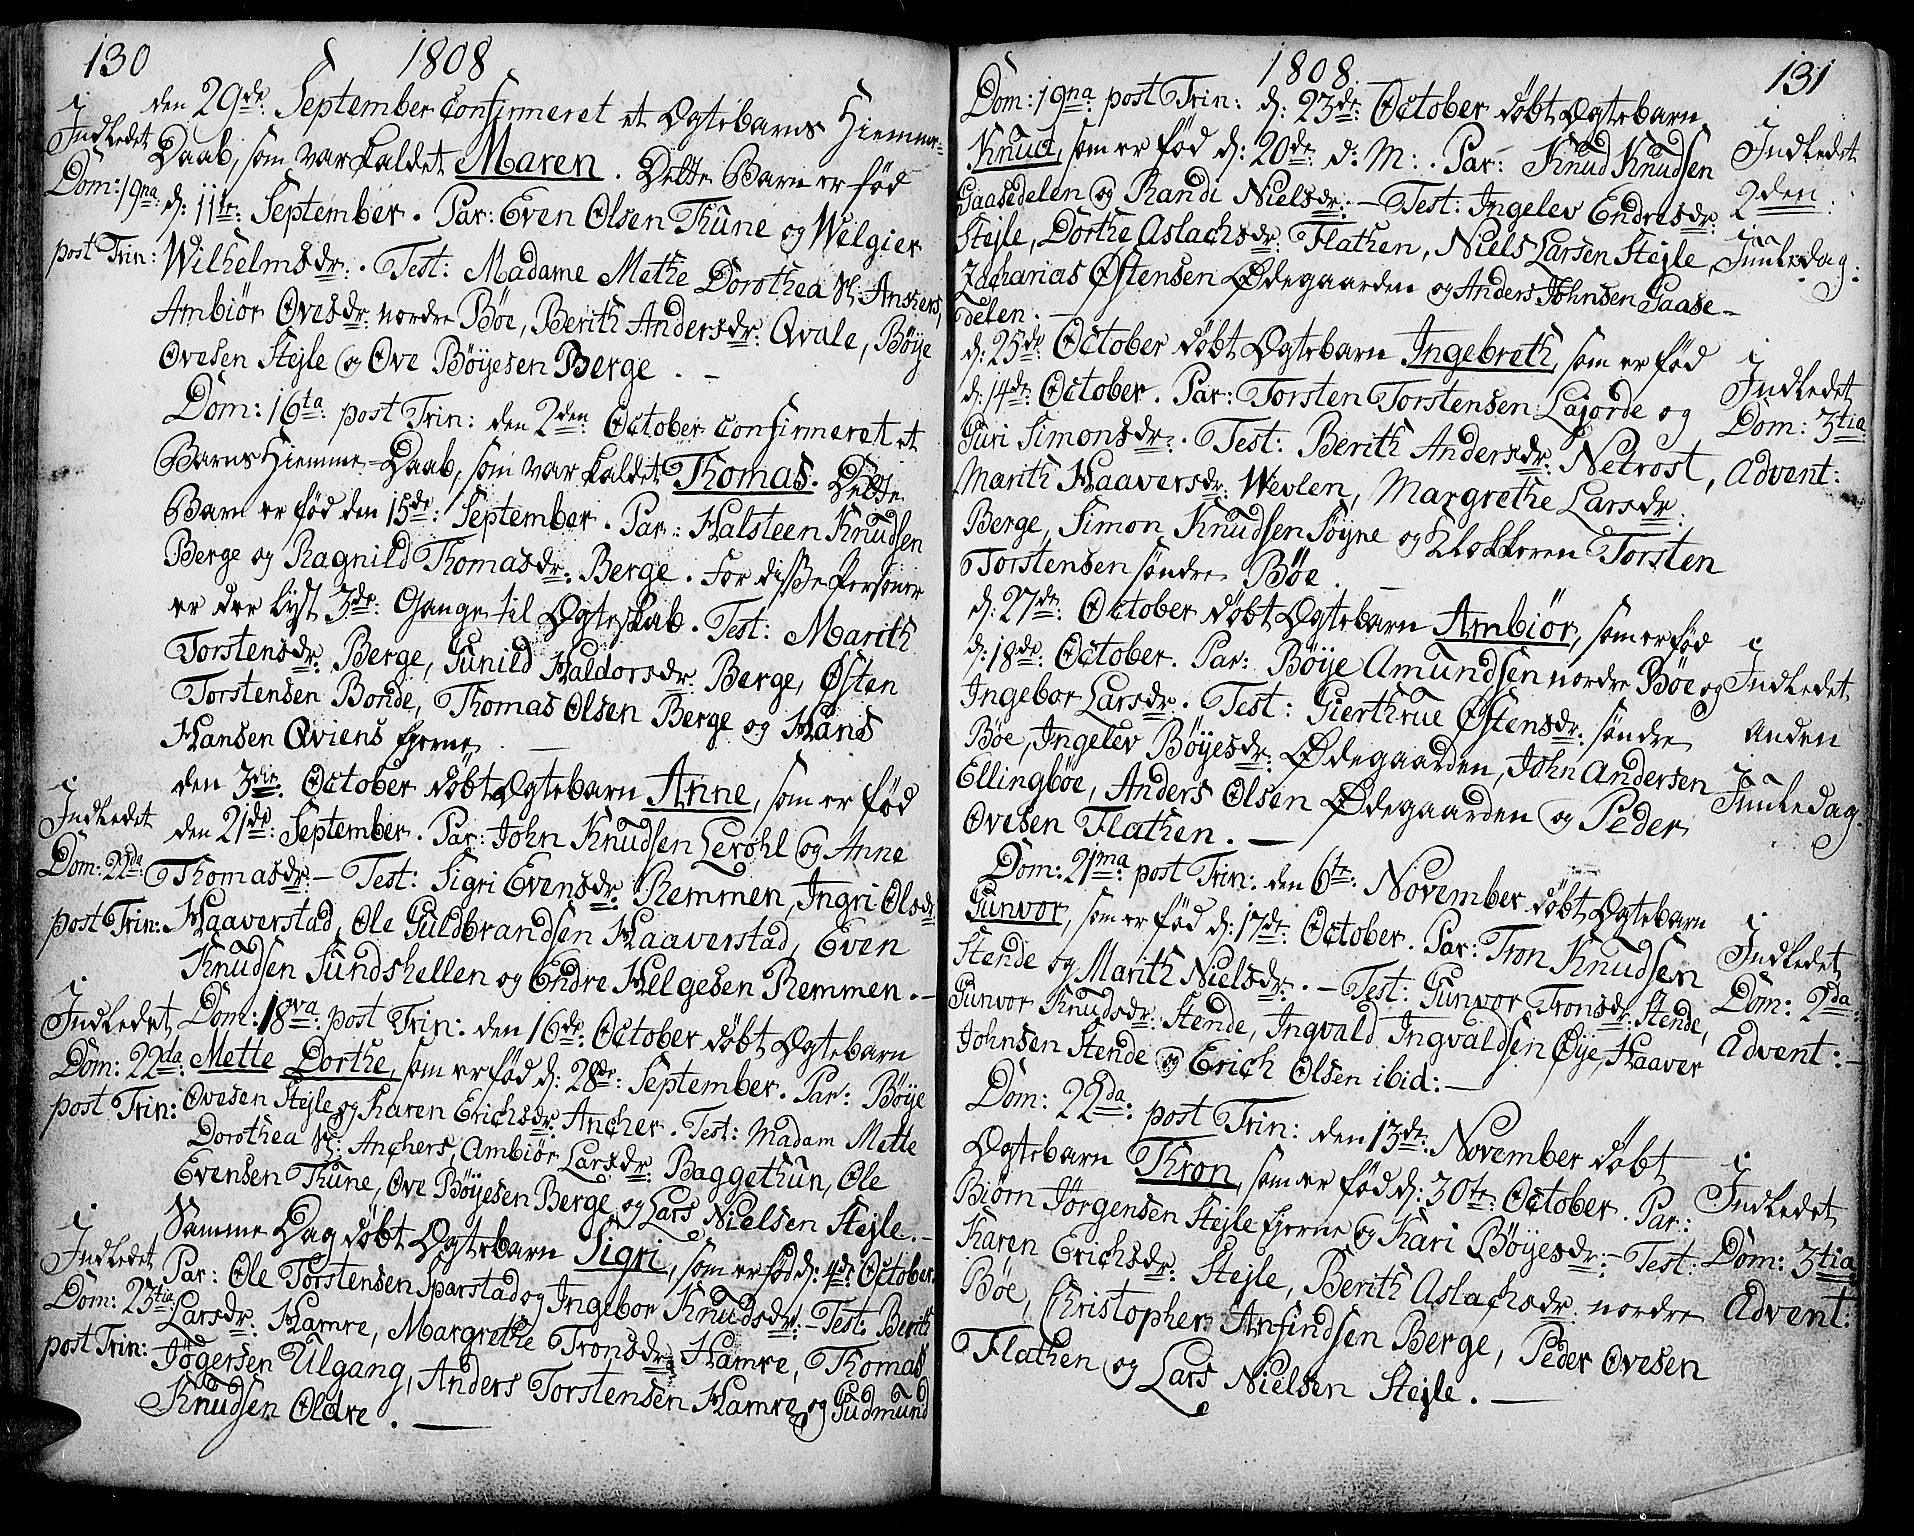 130
1808
den 29de: September confirmeret et Ægtebarns Hiemme=
Daab, som var kaldet Maren. Dette Barn er fød
d: 11te: September. Par: Even Olsen Thune og Welgier
Wilhelmsdr:. Test: Madame Methe Dorothea Sl: Anchers,
Ambiør Ovesdr: nordre Bøe, Berith Andersdr: Qvale, Bøye
Ovesen Stejle og Ove Bøyesen Berge. –
i
Indledet
Dom: 19na:
post Trin:
Dom: 16ta: post Trin: den 2den: October confirmeret et
Barns Hiemme-Daab, som var kaldet Thomas. Dette
Barn er fød den 15de: September. Par: Halsteen Knudsen
Berge og Ragnild Thomasdr: Berge. For disse Personer
er der lyst 3de: Gange til Ægteskab. Test: Marith
Torstensdr: Berge, Gunild Haldorsdr: Berge, Østen
Torstensen Bonde, Thomas Olsen Berge og Hans
Hansen Qviens Ejerne. –
den 3die: October døbt Ægtebarn Anne, som er fød
den 21de: September. Par: John Knudsen Lerohl og Anne
Thomasdr: – Test: Sigri Evensdr: Remmen, Ingri Olsdr:
Haaverstad, Ole Guldbrandsen Haaverstad, Even
Knudsen Sundshellen og Endre Helgesen Remmen. –
i
Indledet
Dom: 22da:
post Trin:
Dom: 18va: post Trin: den 16de: October døbt Ægtebarn
Mette Dorthe, som er fød d: 28de: September. Par: Bøye
Ovesen Stejle og Karen Erichsdr: Ancher. Test: Madam Mette
Dorothea Sl: Anchers, Ambiør Larsdr: Baggethun, Ole
Evensen Thune, Ove Bøyesen Berge og Lars Nielsen Stejle. –
i
Indledet
Dom: 22da:
post Trin:
Samme Dag døbt Ægtebarn Sigri, som er fød d: 4de: October.
Par: Ole Torstensen Sparstad og Ingebor Knudsdr: – Test: Berith
Larsdr: Hamre, Margrethe Tronsdr: Hamre, Thomas
Jøgersen Ulgang, Anders Torstensen Hamre og Gudmund
Knudsen Oldre. –
i
Indledet
Dom: 23tia:
post Trin:
1808
131
Dom: 19na: post Trin: d: 23de: October døbt Ægtebarn
Knud, som er fød d: 20de: d: M:. Par: Knud Knudsen
Gaasedelen og Randi Nielsdr: – Test: Ingelev Endresdr:
Stejle, Dorthe Aslachsdr: Flathen, Niels Larsen Stejle,
Zacharias Østensen Ødegaarden og Anders Johnsen Gaase-
delen. –
i
Indledet
2den:
Juuledag:
d: 25de: October døbt Ægtebarn Ingebreth, som er fød
d: 14de: October. Par: Torsten Torstensen Lajorde og
Guri Simonsdr:. Test: Berith Andersdr: Netrost,
Marith Haaversdr: Wevlen, Margrethe Larsdr:
Berge, Simon Knudsen Søyne og Klokkeren Torsten
Torstensen søndre Bøe. –
i
Indledet
Dom: 3tia:
Advent:
d: 27de: October døbt Ægtebarn Ambiør, som er fød
d: 18de: October. Par: Bøye Amundsen nordre Bøe og
Ingebor Larsdr:. Test: Gierthrue Østensdr: søndre
Bøe, Ingelev Bøyesdr: Ødegaarden, John Andersen
Ellingbøe, Anders Olsen Ødegaarden og Peder
Ovesen Flathen. –
i
Indledet
Anden
Juuledag.
Dom: 21ma: post Trin: den 6te: November døbt Ægtebarn
Gunvor, som er fød d: 17de: October. Par: Tron Knudsen
Stende og Marith Nielsdr:. – Test: Gunvor Tronsdr: Stende,
Gunvor Knudsdr: Stende, Ingvald Ingvaldsen Øye, Haaver
Johnsen Stende og Erich Olsen ibid: –
i
Indledet
Dom: 2da:
Advent: –
Dom: 22da: post Trin: den 13de: November døbt
Ægtebarn Thron, som er fød d: 30te: October. Par:
Biørn Jørgensen Stejle Ejerne og Kari Bøyesdr: – Test:
Karen Erichsdr: Stejle, Berith Aslachsdr: nordre
Bøe, Christopher Anfindsen Berge, Peder Ovesen
Flathen og Lars Nielsen Stejle. –
i
Indledet
Dom: 3tia:
Advent: